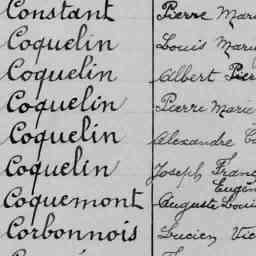 Constant Pierre Mari
Coquelin Louis Mary
Coquelin Albert Pier
Coquelin Pierre Marie
Coquelin Alexandre
Coquelin Joseph Franç
Eugèn
Coquemont Auguste Loui
Corbonnois Lucien Vic